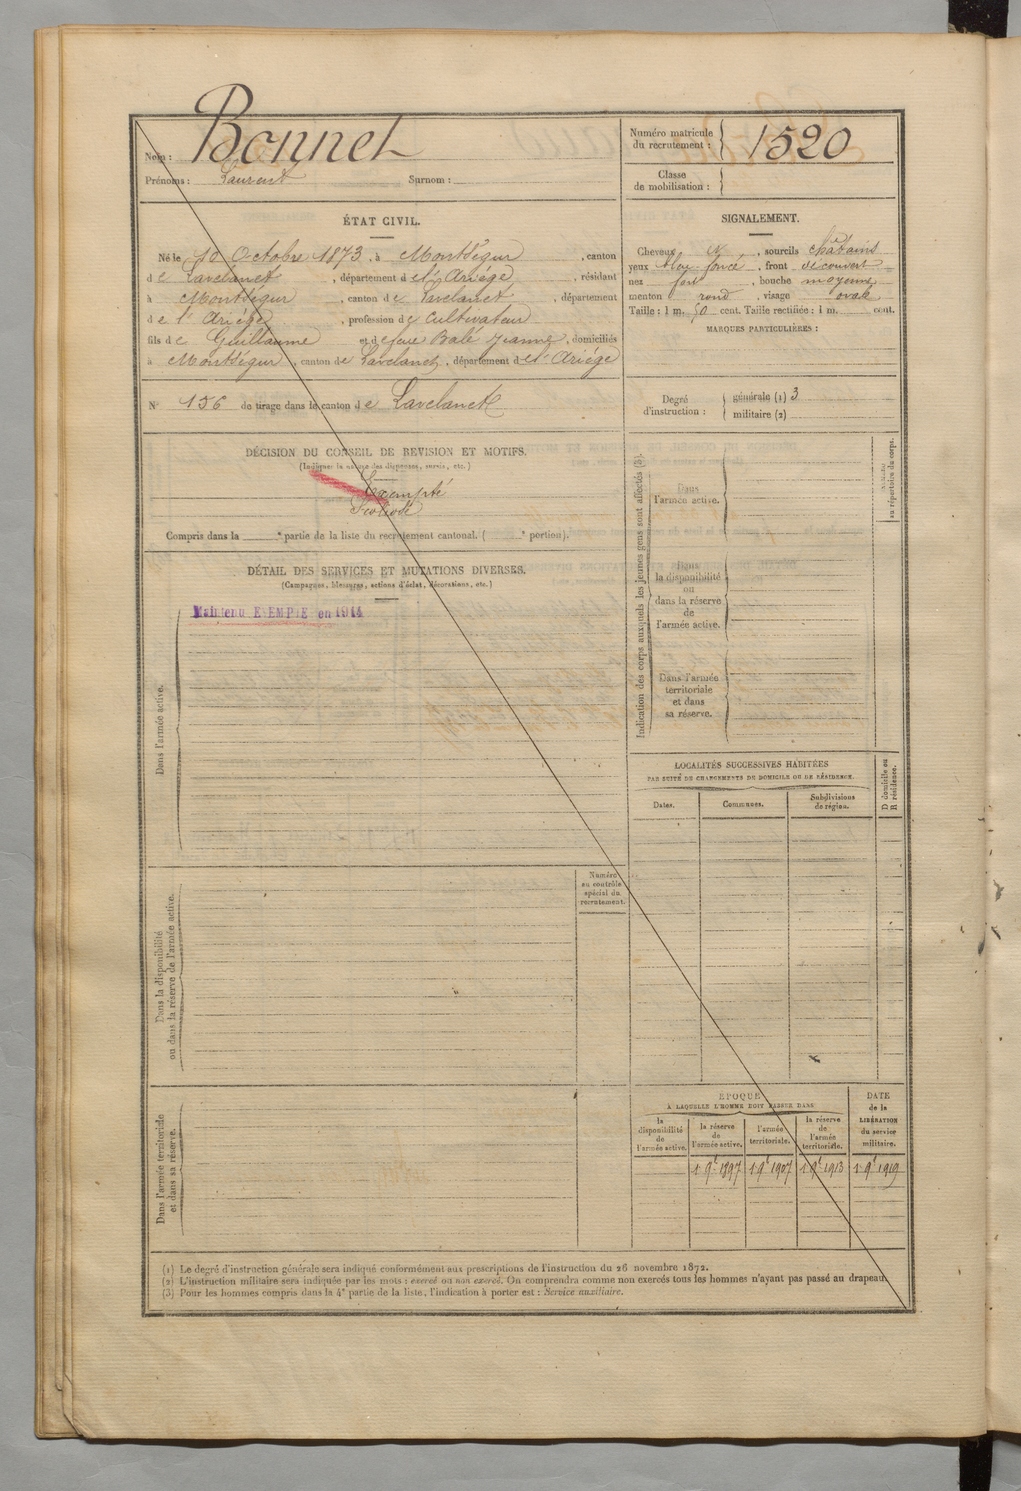 Nom : Bonnet
Prénoms : Laurent Surnom :
Numéro matricule du recrutement : 1520
Classe de mobilisation :
ÉTAT CIVIL.
Né le 10 Octobre 1873, à Montségur, canton
de Lavelanet, département de l'Ariége, résidant
à Montségur, canton de Lavelanet, département
de l'Ariége, profession de Cultivateur
fils de Guillaume et de Jeanne, domiciliés
à Montségur, canton de Lavelanet, département de l'Ariége
N° 156 de tirage dans le canton de Lavelanet
SIGNALEMENT.
Cheveux et, sourcils châtains
yeux foncé, front découvert
nez fort, bouche moyenne
menton rond, visage ovale
Taille : 1 m. 50 cent. Taille rectifiée : 1 m. cent.
MARQUES PARTICULIÈRES :
Degré d'instruction : générale (1) 3
militaire (2)
DÉCISION DU CONSEIL DE REVISION ET MOTIFS.
(Indiquer la nature des dispenses, sursis, etc.)
Exempté
Compris dans la e partie de la liste du recrutement cantonal. ( e portion).
DÉTAIL DES SERVICES ET MUTATIONS DIVERSES.
(Campagnes, blessures, actions d'éclat, décorations, etc.)
Maintenu EXEMPTE en 1914
Dans l'armée active.
Dans la disponibilité
ou dans la réserve de l'armée active.
Numéro
au contrôle
spécial du
recrutement.
Dans l'armée territoriale
et dans sa réserve.
Indication des corps auxquels les jeunes gens sont affectés (3).
Dans
l'armée active.
Dans
la disponibilité
ou
dans la réserve
de
l'armée active.
Dans l'armée
territoriale
et dans
sa réserve.
au répertoire du corps.
LOCALITÉS SUCCESSIVES HABITÉES
PAR SUITE DE CHANGEMENTS DE DOMICILE OU DE RÉSIDENCE.
Dates.
Communes.
Subdivisions
de région.
D domicile ou
R résidence.
ÉPOQUE
À LAQUELLE L'HOMME DOIT PASSER DANS
la
disponibilité
de
l'armée active.
la réserve
de
l'armée active.
l'armée
territoriale.
la réserve
de
l'armée
territoriale.
DATE
de la
LIBÉRATION
du service
militaire.
1 9e 1897 1 9e 1907 1 9e 1913 1 9e 1919
(1) Le degré d'instruction générale sera indiqué conformément aux prescriptions de l'instruction du 26 novembre 1872.
(2) L'instruction militaire sera indiquée par les mots : exercé ou non exercé. On comprendra comme non exercés tous les hommes n'ayant pas passé au drapeau.
(3) Pour les hommes compris dans la 4e partie de la liste, l'indication à porter est : Service auxiliaire.